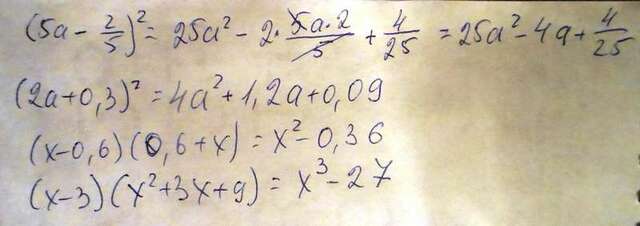 (5a - 2/5)² = 25a² - 2 · 5a·2/5 + 4/25 = 25a² - 4a + 4/25
(2a+0,3)² = 4a² + 1,2a + 0,09
(x-0,6)(0,6+x) = x² - 0,36
(x-3)(x²+3x+9) = x³ - 27